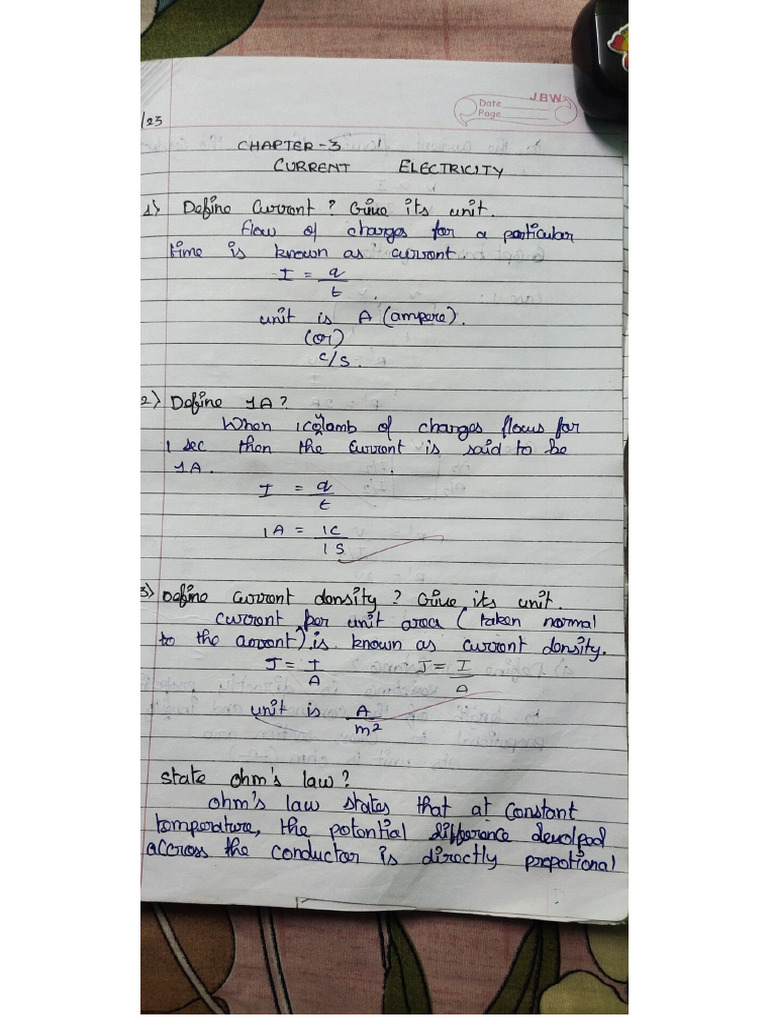 JBW
Date
Page
/23
CHAPTER-3
CURRENT ELECTRICITY
1) Define Current? Give its unit.
flow of charges for a particular
time is known as current.
I = q
t.
unit is A (ampere).
(or)
C/S.
2) Define 1A?
When 1 Coulamb of charges flows for
1 sec then the current is said to be
1A.
I = q
t
1A = 1C
1S
3) Define current density? Give its unit.
Current per unit area (taken normal
to the current) is known as current density.
J = I J = I
A A
unit is A
m2
state ohm's law?
Ohm's law states that at constant
temperature, the potential differance devolped
accross the conductor is directly propotional